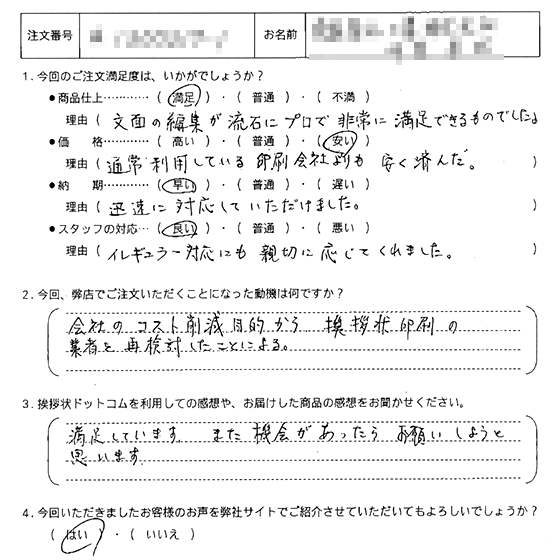 注文番号 お名前
1.今回のご注文満足度は、いかがでしょうか？
●商品仕上…………( 満足 )・( 普通 )・( 不満 )
理由 ( 文面の編集が流石にプロで非常に満足できるものでしたよ
●価　格…………( 高い )・( 普通 )・( 安い )
理由 ( 通常利用している印刷会社よりも安く済んだ。 )
●納　期…………( 早い )・( 普通 )・( 遅い )
理由 ( 迅速に対応していただけました。 )
●スタッフの対応…( 良い )・( 普通 )・( 悪い )
理由 ( イレギュラー対応にも親切に応じてくれました。 )
2.今回、弊店でご注文いただくことになった動機は何ですか？
会社のコスト削減目的から 挨拶状印刷の
業者を再検討したことによる。
3.挨拶状ドットコムを利用しての感想や、お届けした商品の感想をお聞かせください。
満足しています。また機会があったらお願いしようと
思います
4.今回いただきましたお客様のお声を弊社サイトでご紹介させていただいてもよろしいでしょうか？
( はい )・( いいえ )